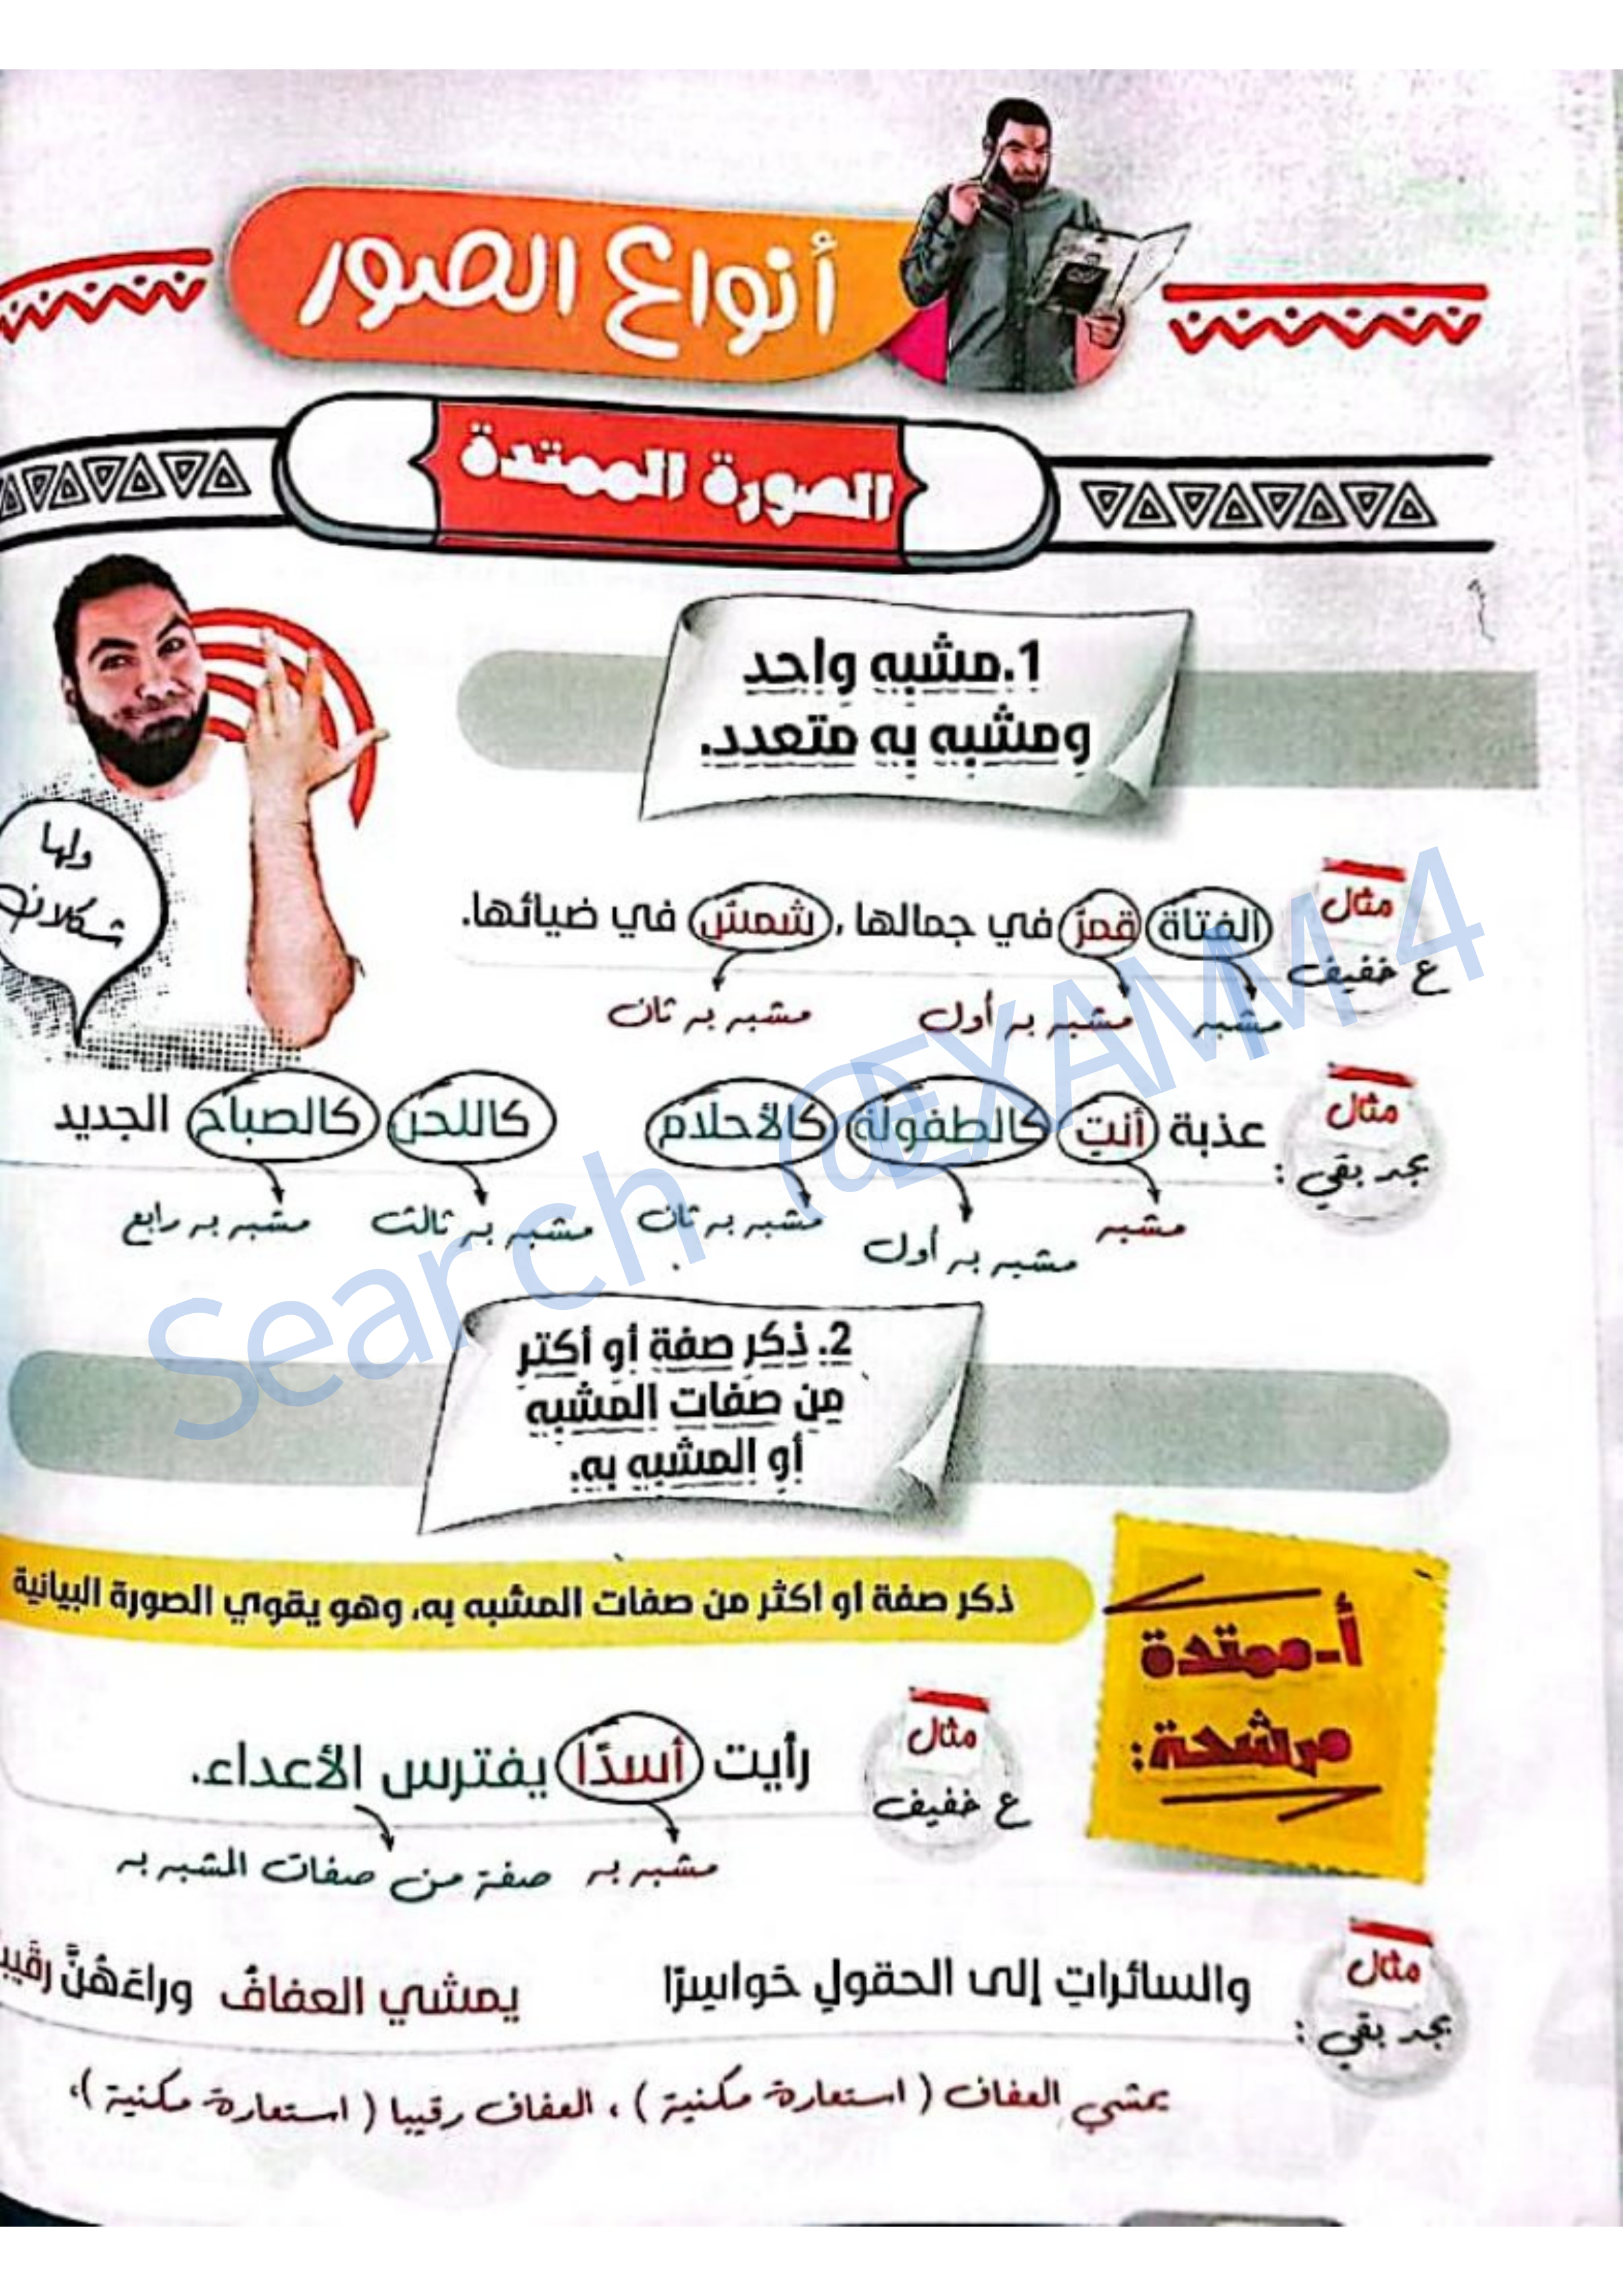 أنواع الصور
الصورة الممتدة
1.مشبه واحد
ومشبه به متعدد.
ولها
شكلان
مثال
ع خفيف
الفتاة قمرٌ في جمالها، شمسٌ في ضيائها.
مشبه مشبه به أول مشبه به ثان
مثال
بجد بقي :
عذبة أنتِ كالطفولة كالأحلام كاللحن كالصباح الجديد
مشبه مشبه به أول مشبه به ثان مشبه به ثالث مشبه به رابع
2. ذكر صفة أو أكثر
من صفات المشبه
أو المشبه به.
أ-ممتدة
مرشحة:
ذكر صفة أو أكثر من صفات المشبه به، وهو يقوي الصورة البيانية
مثال
ع خفيف
رأيت أسدًا يفترس الأعداء.
مشبه به صفة من صفات المشبه به
مثال
بجد بقي :
والسائراتِ إلى الحقولِ حَواسِرًا يمشي العفافُ وراءَهُنَّ
يمشي العفاف ( استعارة مكنية ) ، العفاف رقيبا ( استعارة مكنية )،
Search @EXAMM4